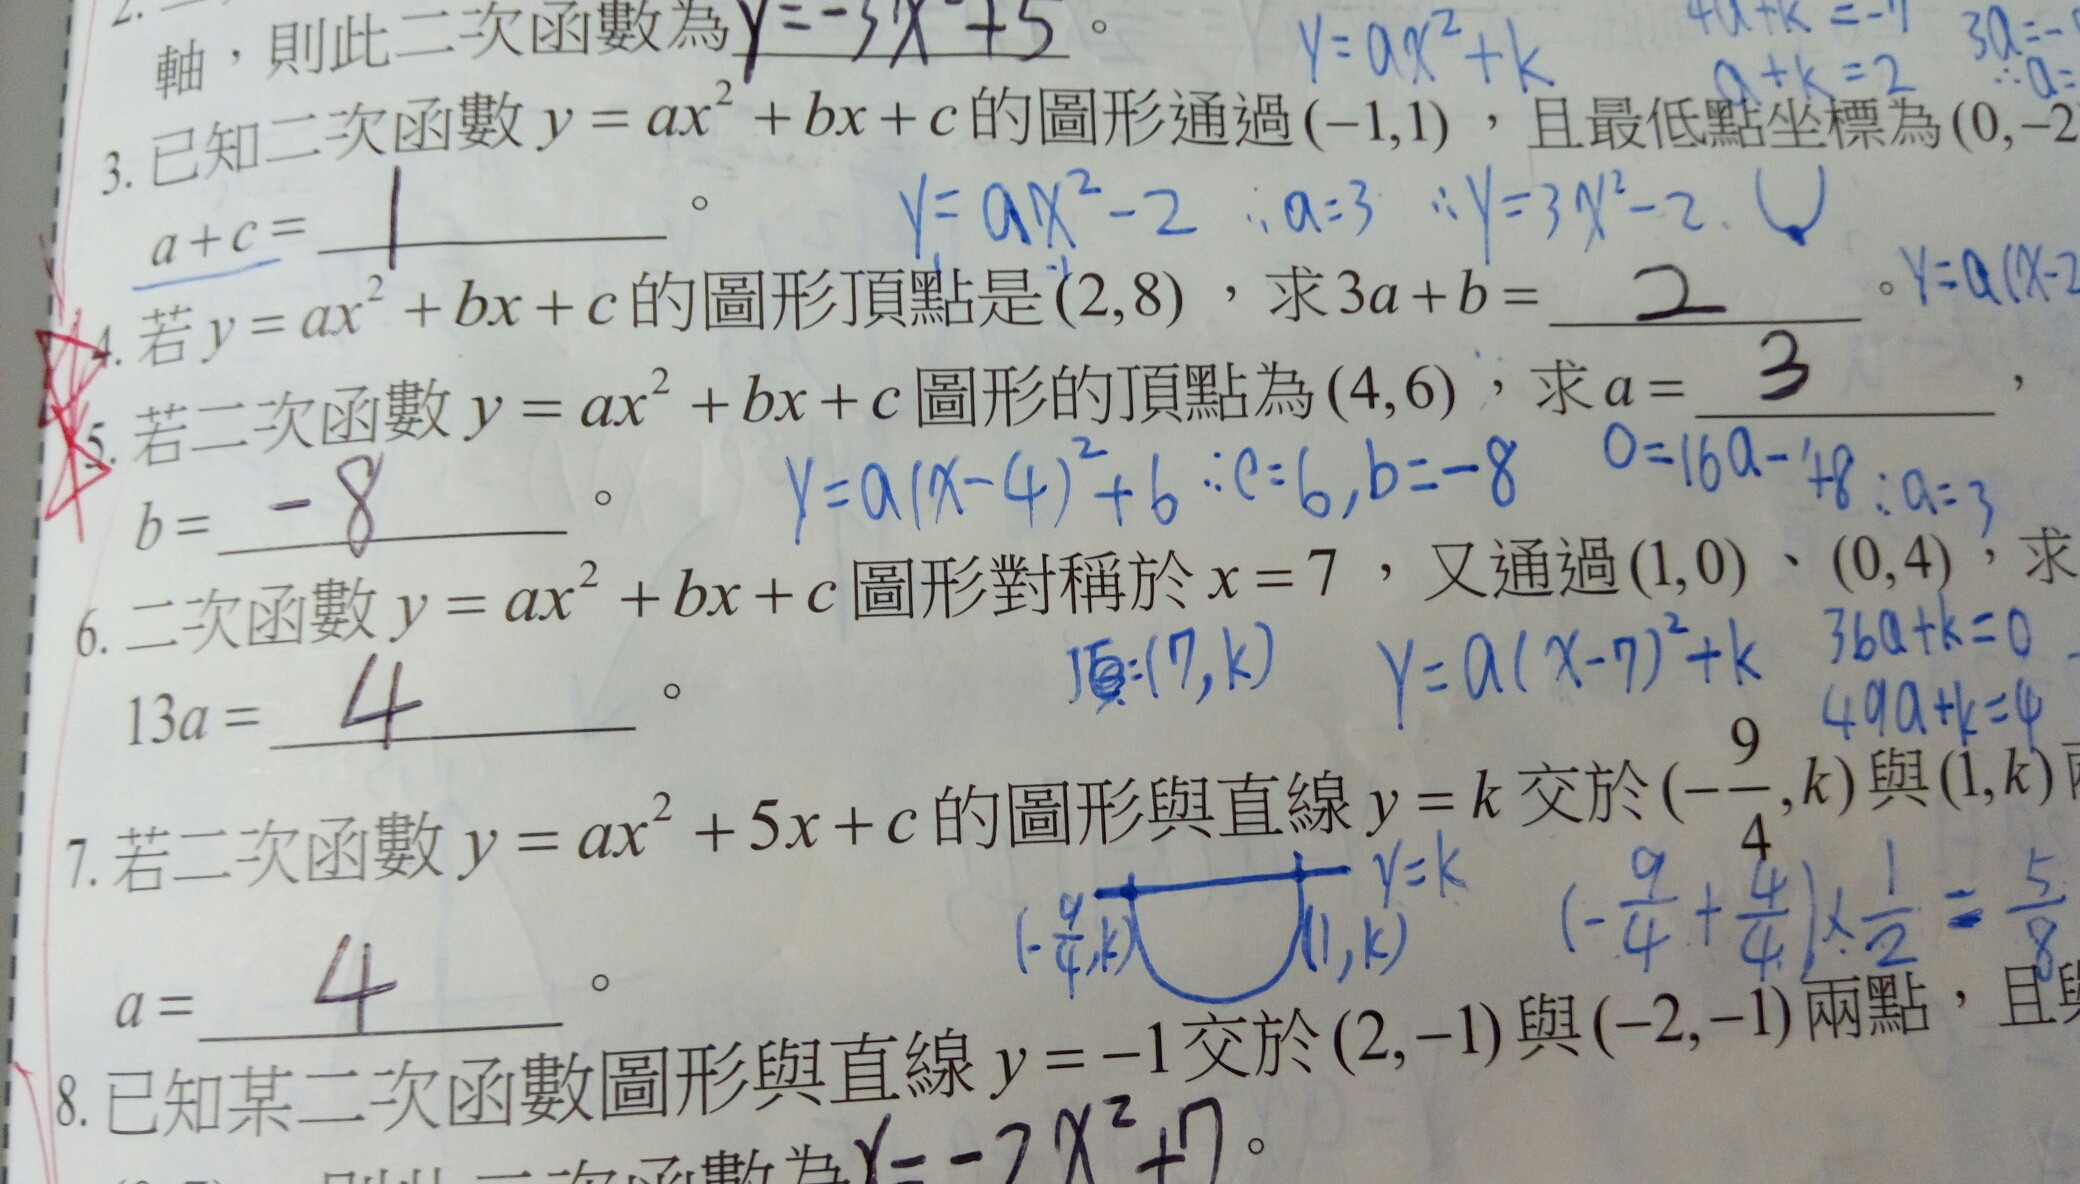 2.
軸，則此二次函數為 y=-3x²+5 。
y=ax²+k
4a+k=-7
a+k=2
3a=-
∴a=
3. 已知二次函數 y = ax² + bx + c 的圖形通過 (−1,1) ，且最低點坐標為 (0,−2
a + c = 1 。
y=ax²-2 ∴a=3 ∴y=3x²-2
4. 若 y = ax² + bx + c 的圖形頂點是 (2,8) ，求 3a + b = 2 。
y=a(x-2
5. 若二次函數 y = ax² + bx + c 圖形的頂點為 (4,6) ，求 a = 3 ，
b = -8 。
y=a(x-4)²+6 ∴c=6, b=-8
0=16a- +8 ∴a=3
6. 二次函數 y = ax² + bx + c 圖形對稱於 x = 7 ，又通過 (1,0) 、 (0,4) ，求
13a = 4 。
頂:(7,k) y=a(x-7)²+k
36a+k=0
49a+k=4
7. 若二次函數 y = ax² + 5x + c 的圖形與直線 y = k 交於 (−9/4, k) 與 (1, k)
a = 4 。
y=k
(-9/4,k) (1,k)
(-9/4+4/4)×1/2=5/8
8. 已知某二次函數圖形與直線 y = −1 交於 (2,−1) 與 (−2,−1) 兩點，且與
則此二次函數為 y=-2x²+7 。